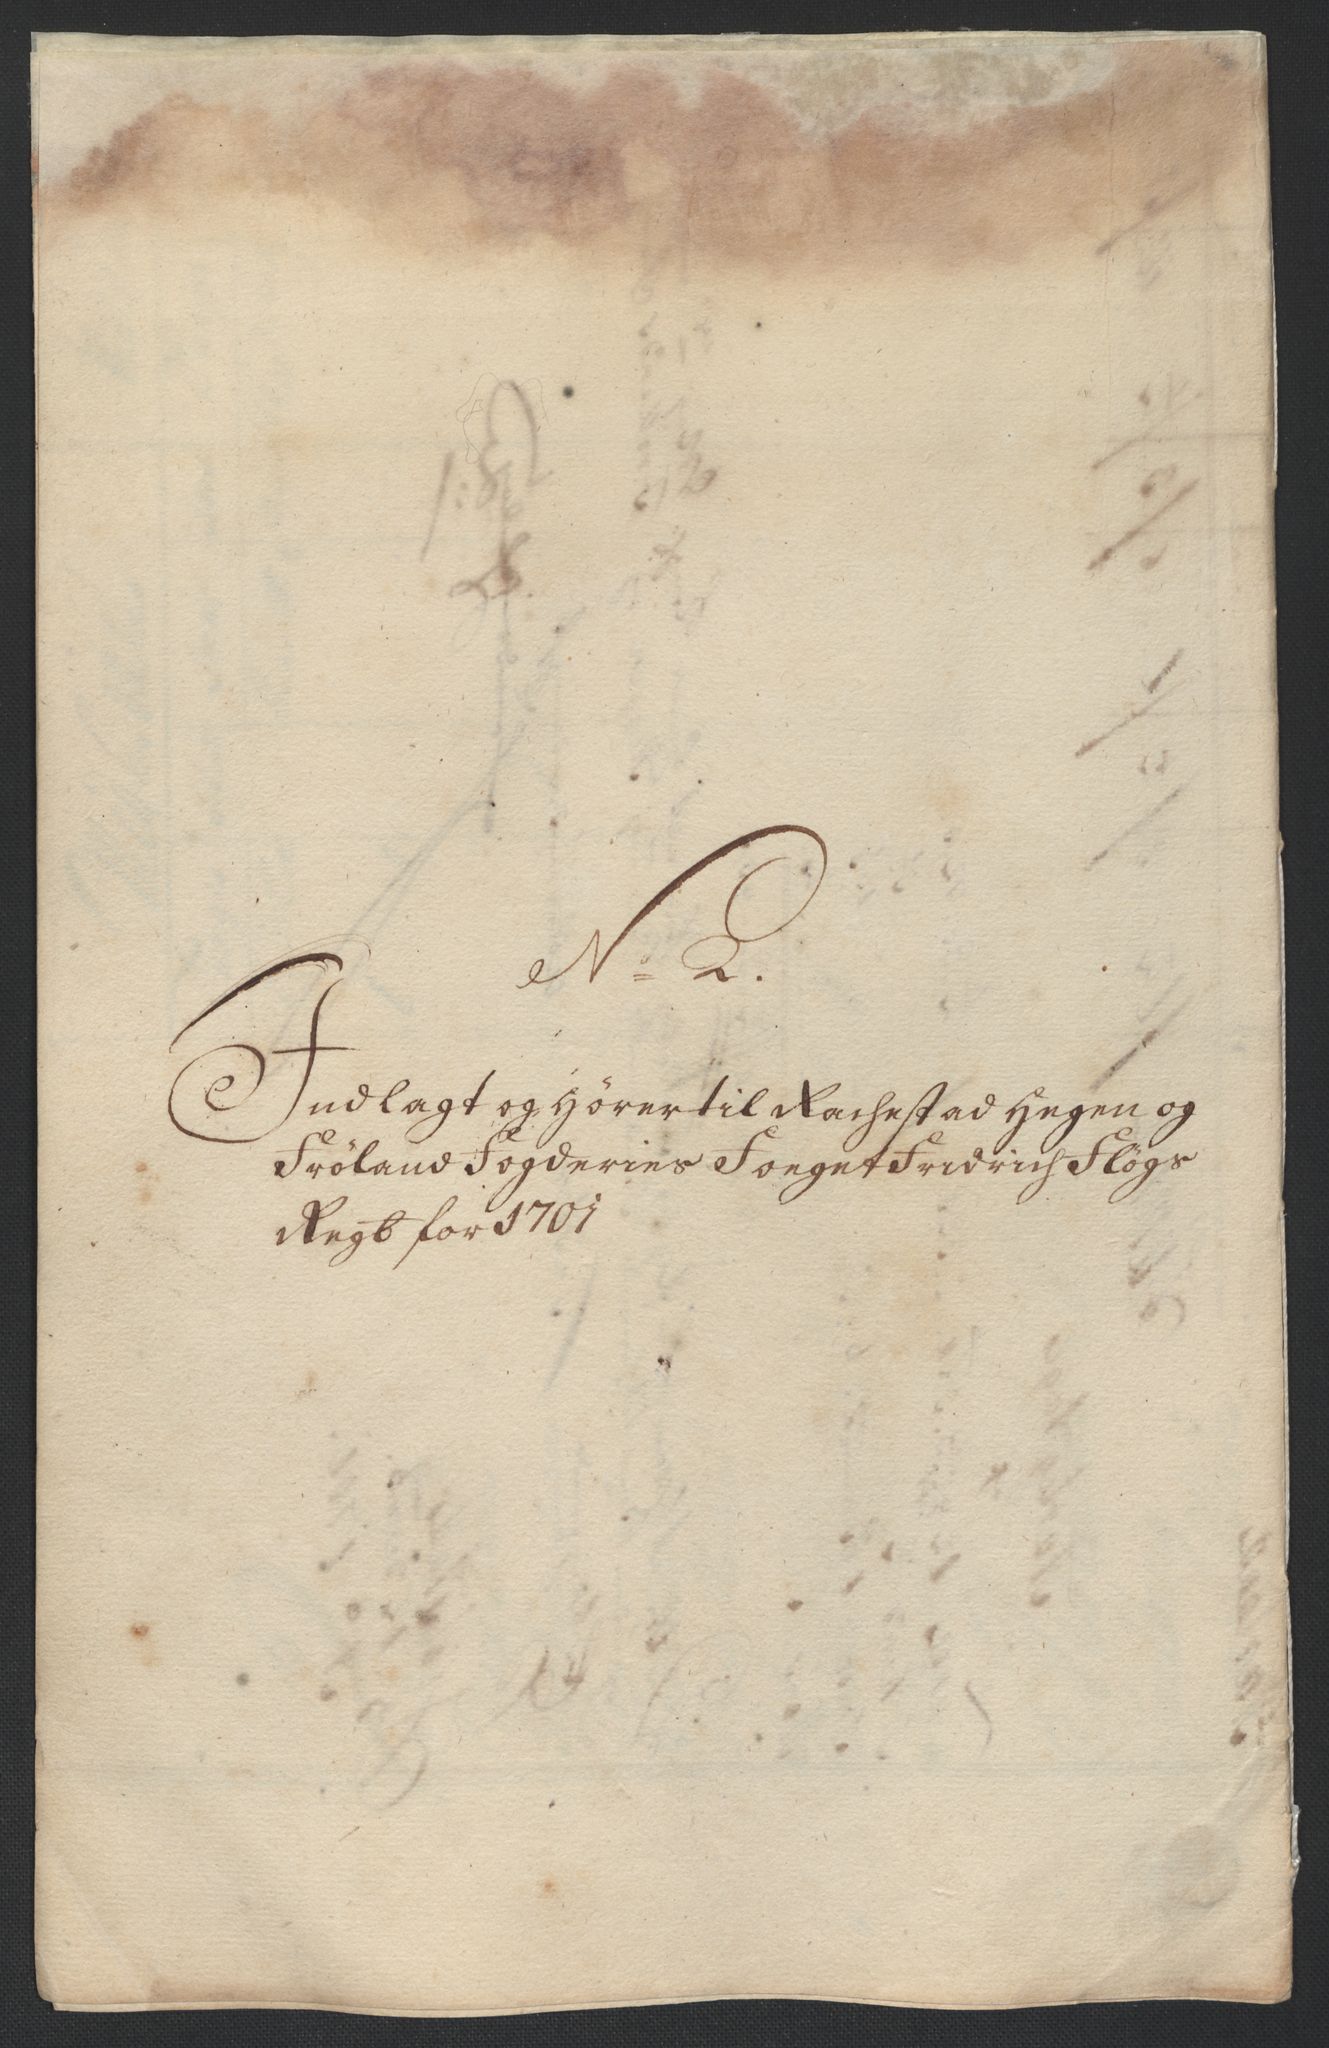 No 2.
Indlagt og Hörer til Rachestad Heggen og
Fröland Fogderies Foeget Fridrich Flögs
Regb for 1701